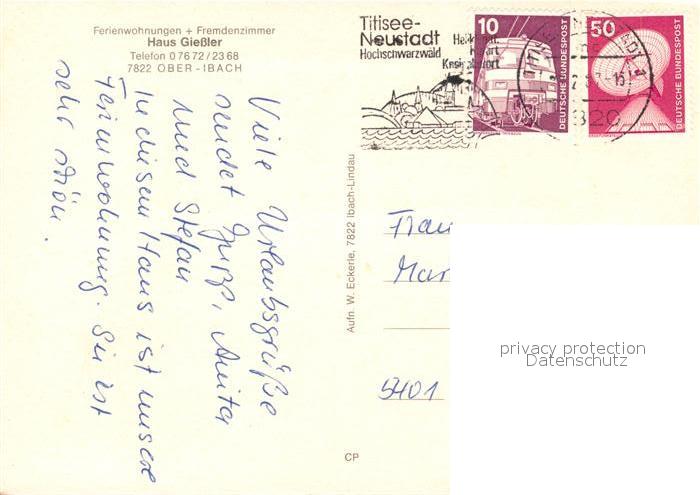 Ferienwohnungen + Fremdenzimmer
Haus Gießler
Telefon 0 76 72 / 23 68
7822 OBER-IBACH
Viele Urlaubsgrüße
sendet Anita
und Stefan
In diesem Haus ist unsere
Ferienwohnung. Sie ist
sehr schön.
Aufn. W. Eckerle, 7822 Ibach-Lindau
CP
Titisee-
Neustadt
Hochschwarzwald
Kneippkurort
10
DEUTSCHE BUNDESPOST
50
DEUTSCHE BUNDESPOST
820
Frau
Mar
5401
privacy protection
Datenschutz